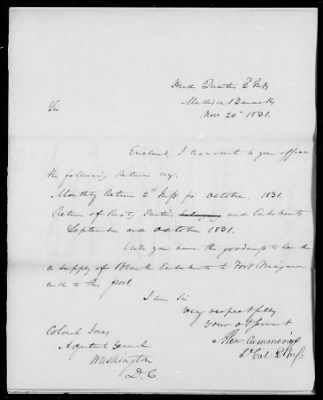 Head Quarters 2 Inf
Madison Barracks
Nov. 20th 1831.
Sir
Enclosed, I transmit to your office
the following Returns viz:
Monthly Return 2d Inf. for October, 1831.
Return of and
September and October 1831.
Will you have the goodness to send
a supply of Blank to Fort Niagara
and to this post.
I am Sir
Very respectfully
your obt servt
Alexr Cummings
Lt Col 2 Inf.
Colonel Jones
Adjutant General
Washington
D.C.